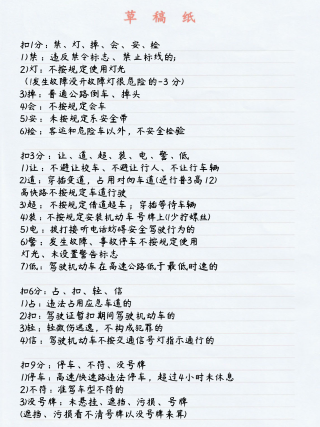 草稿纸
扣1分:禁、灯、掉、会、安、检
1)禁:违反禁令标志、禁止标线的;
2)灯:不按规定使用灯光
(1发生故障没开故障灯很危险的-3分)
3)掉:普通公路倒车、掉头
4)会:不按规定会车
5)安:未按规定系安全带
6)检:客运和危险车以外,不安全检验
扣3分:让、道、超、装、电、警、低
1)让:不避让校车、不避让行人、不让行车辆
2)道:穿插变道,占用对向车道(逆行普3高12)
高快路不按规定车道行驶
3)超:不按规定借道超车;穿插等待车辆
4)装:不按规定安装机动车号牌上(1少拧螺丝)
5)电:拨打接听电话妨碍安全驾驶行为的
6)警:发生故障、事故停车不按规定使用
灯光、未设置警告标志
7)低:驾驶机动车在高速公路低于最低时速的
扣6分:占、扣、轻、信
1)占:违法占用应急车道的
2)扣:驾驶证暂扣期间驾驶机动车的
3)轻:轻微伤逃逸,不构成犯罪的
4)信:驾驶机动车不按交通信号灯指示通行的
扣9分:停车、不符、没号牌
1)停车:高速/快速路违法停车,超过4小时未休息
2)不符:准驾车型不符的
3)没号牌:未悬挂、遮挡、污损号牌的
(遮挡、污损看不清号牌以没号牌来算)